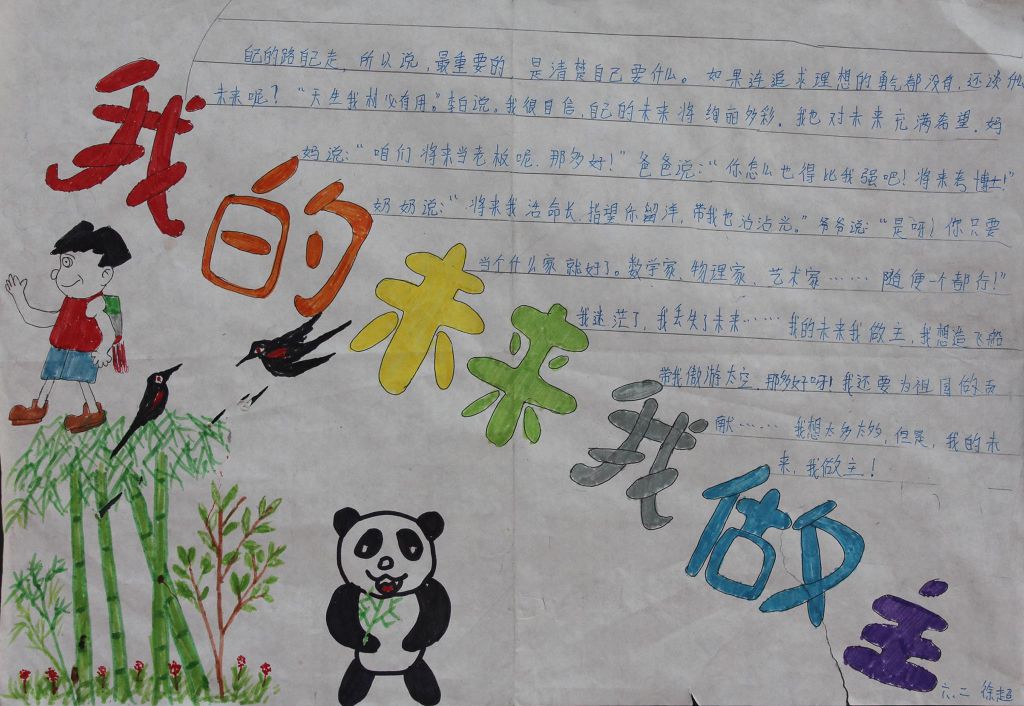 我的未来我做主
自己的路自己走，所以说，最重要的，是清楚自己要什么。如果连追求理想的勇气都没有，还谈什么
未来呢？“天生我材必有用。”李白说。我很自信，自己的未来将绚丽多彩。我也对未来充满希望。妈
妈说：“咱们将来当老板呢，那多好！”爸爸说：“你怎么也得比我强吧！将来考博士！”
奶奶说：“将来我活命长，指望你留洋，带我也沾沾光。”爷爷说：“是呀！你只要
当个什么家就好了。数学家、物理家、艺术家……随便一个都行！”
我迷茫了，我丢失了未来……我的未来我做主，我想造飞船
带我傲游太空，那多好呀！我还要为祖国做贡
献……我想太多太多，但是，我的未
来，我做主！
六.二 徐超